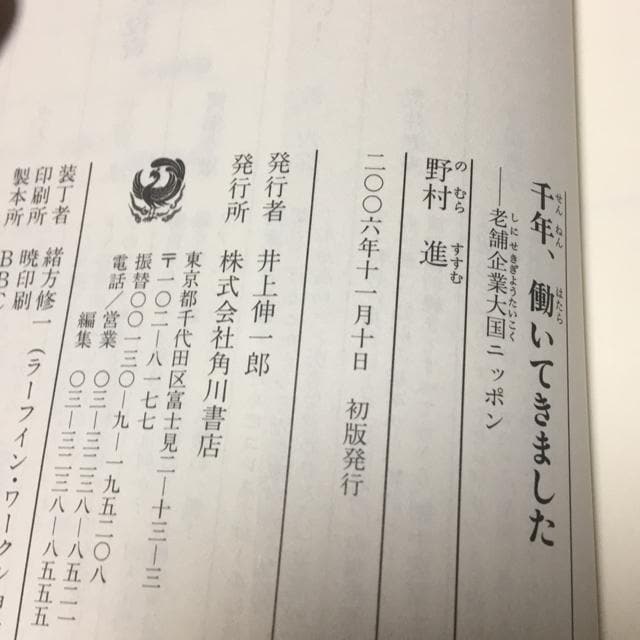 千年、働いてきました
せんねん はたら
――老舗企業大国ニッポン
しにせきぎょうたいこく
野村 進
のむら すすむ
二〇〇六年十一月十日 初版発行
発行者 井上伸一郎
発行所 株式会社角川書店
東京都千代田区富士見二―十三―三
〒一〇二―八一七七
振替〇〇一三〇―九―一九五二〇八
電話/営業 〇三―三二三八―八五二一
編集 〇三―三二三八―八五五五
装丁者 緒方修一(ラーフイン・ワークショ
印刷所 暁印刷
製本所 BBC